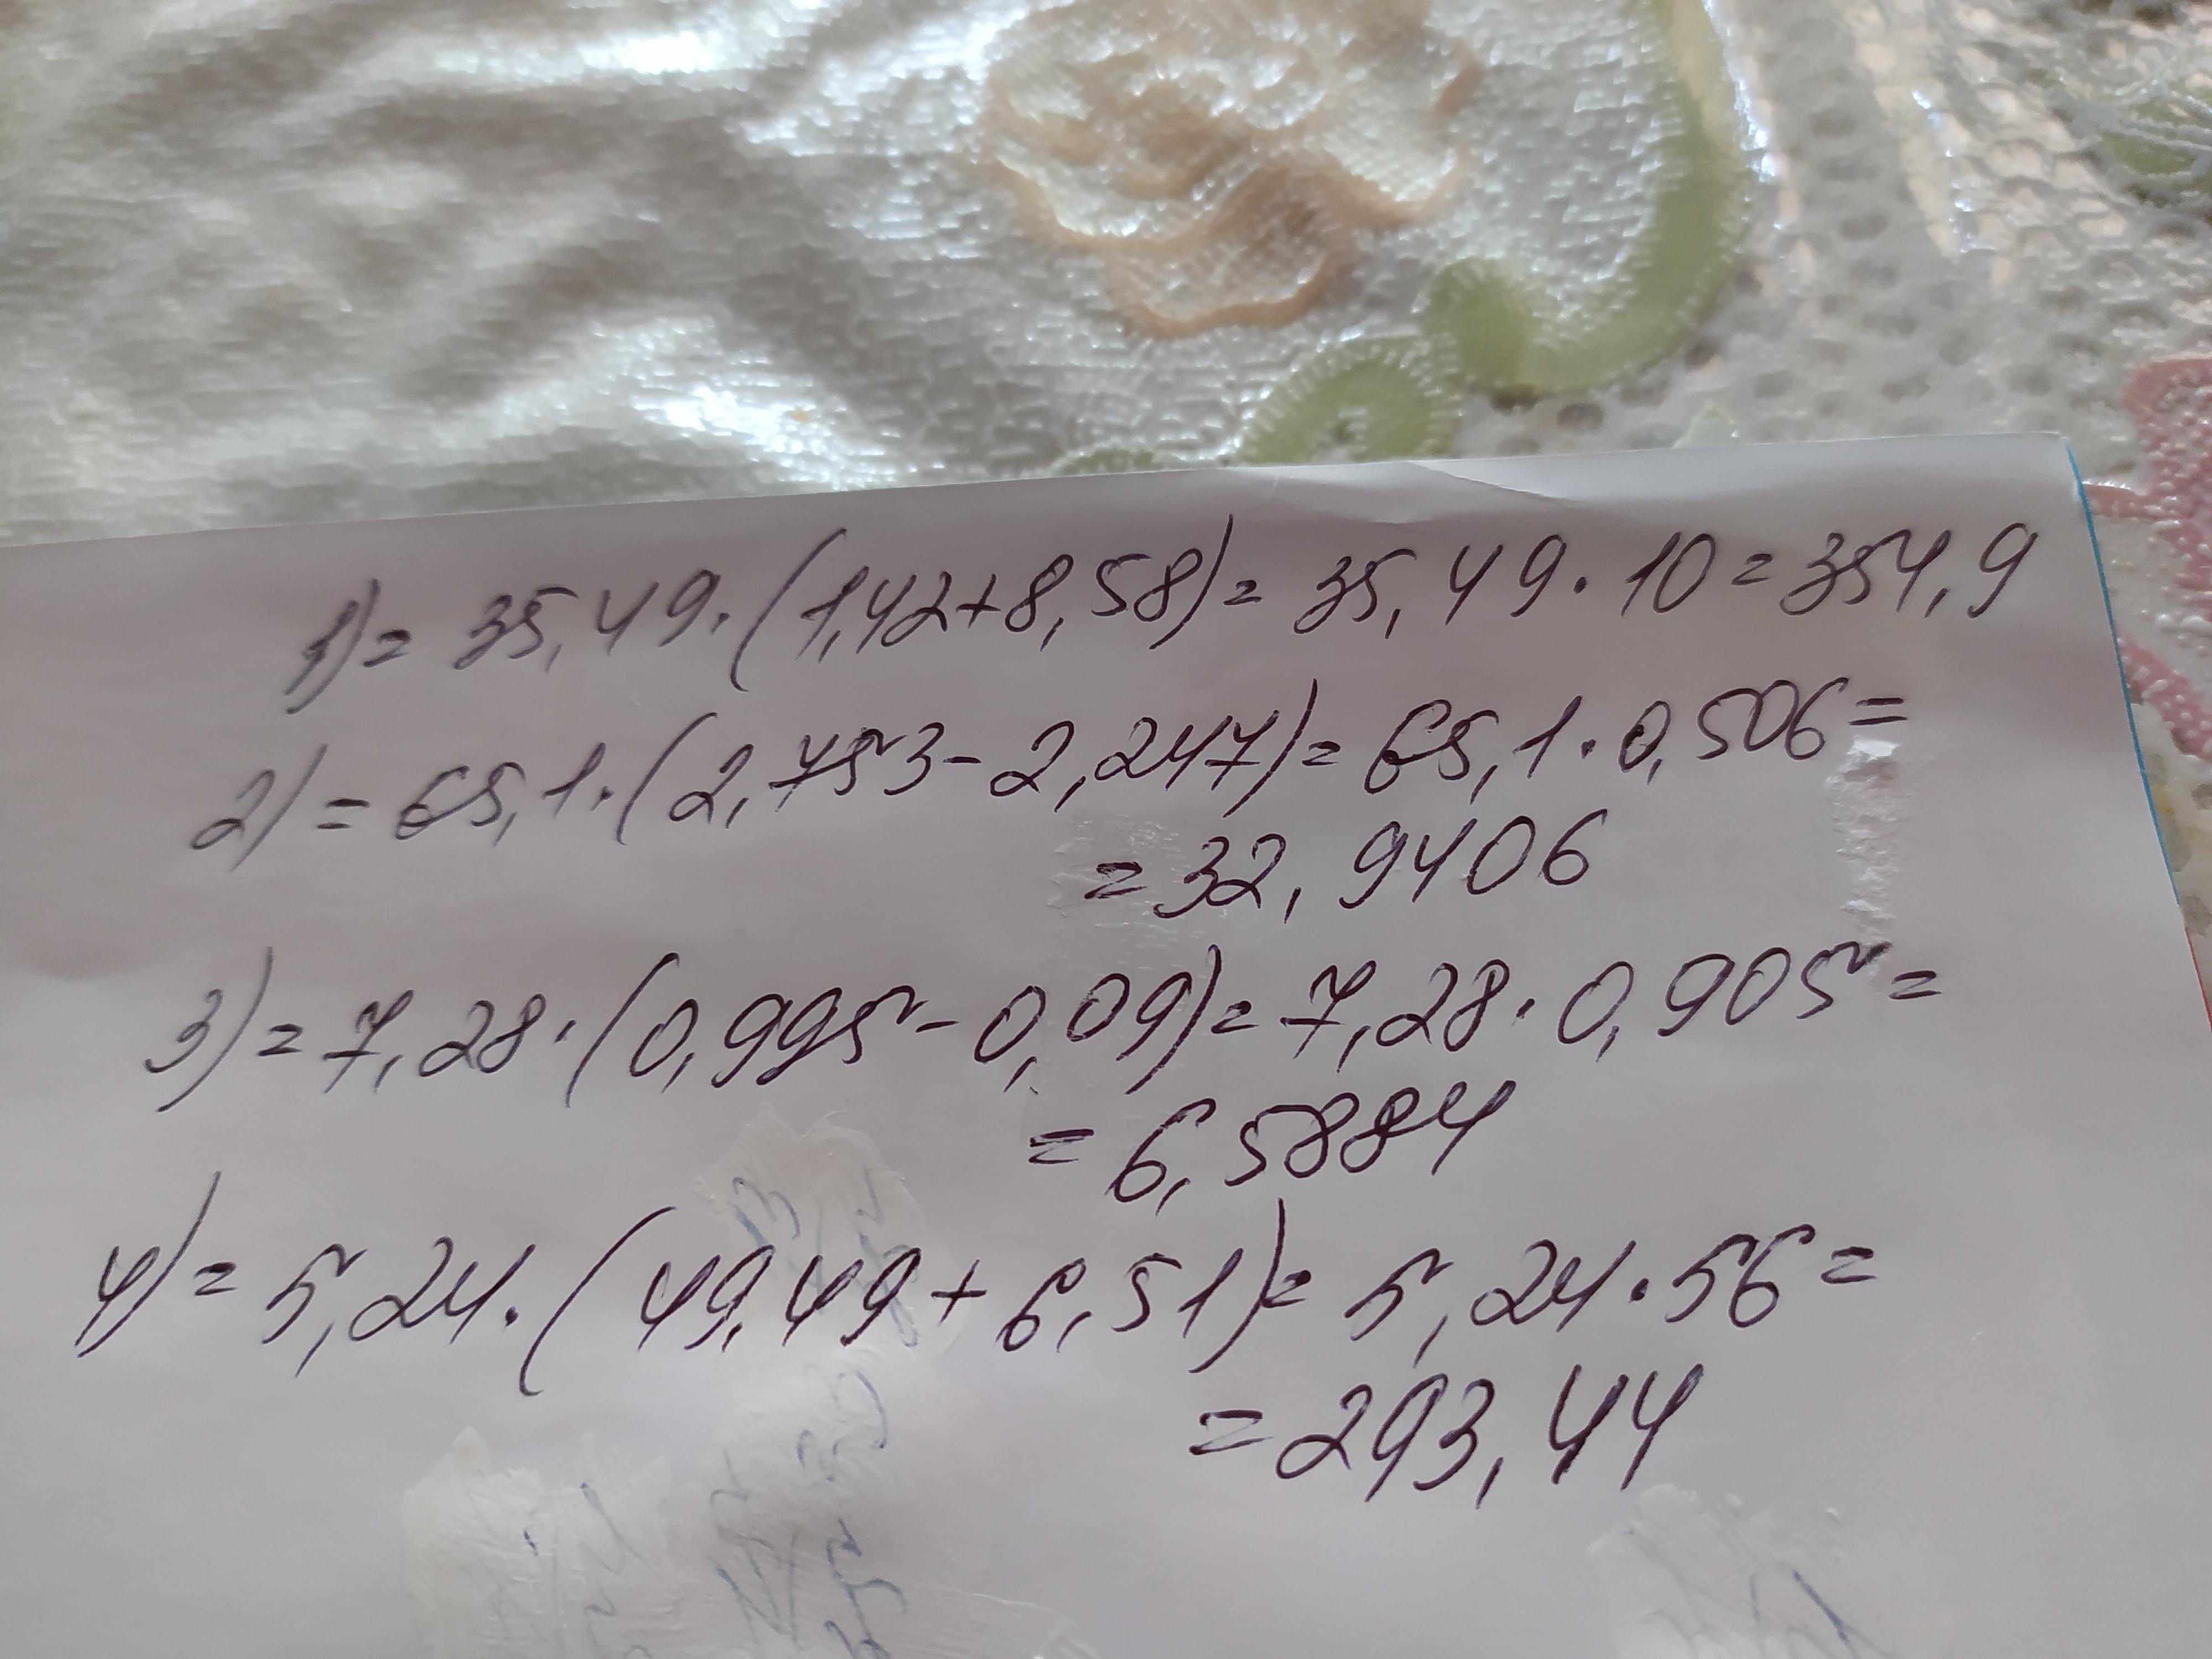 1) = 35,49 · (1,42+8,58) = 35,49 · 10 = 354,9
2) = 65,1 · (2,753 - 2,247) = 65,1 · 0,506 =
= 32,9406
3) = 7,28 · (0,995 - 0,09) = 7,28 · 0,905 =
= 6,5884
4) = 5,24 · (49,49 + 6,51) = 5,24 · 56 =
= 293,44